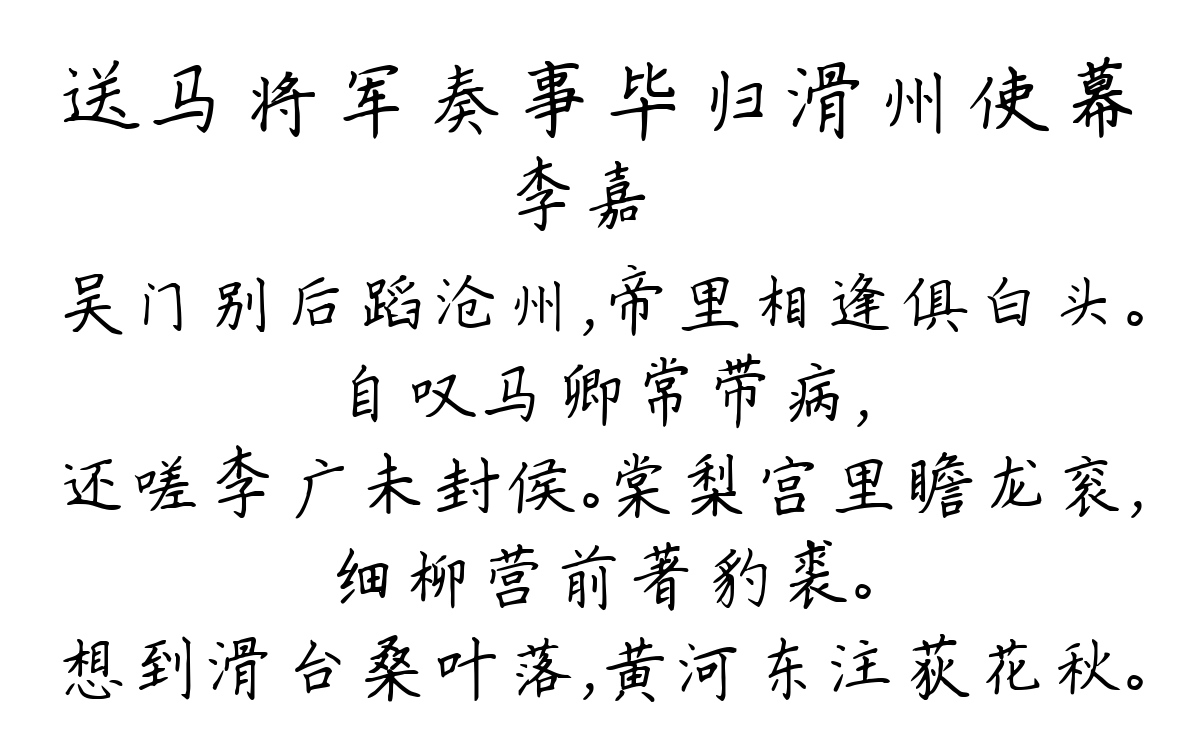 送马将军奏事毕归滑州使幕
李嘉
吴门别后蹈沧州,帝里相逢俱白头。
自叹马卿常带病,
还嗟李广未封侯。棠梨宫里瞻龙衮,
细柳营前著豹裘。
想到滑台桑叶落,黄河东注荻花秋。